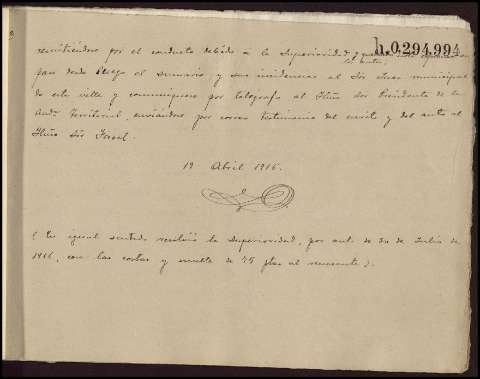 h.0.294.994
remitiéndose por el conducto debido a la Superioridad y
los autos;
pase desde luego el sumario y sus incidencias al Sor Juez municipal
de esta villa y comuníquese por telégrafo al Iltmo Sor Presidente de la
Audª Territorial, enviándose por correo testimonio del escrito y del auto al
Iltmo Sor Fiscal.
19 Abril 1916.
(En igual sentido resolvió la Superioridad, por auto de de Julio de
1916, con las costas y multa de 75 ptas al recusante).